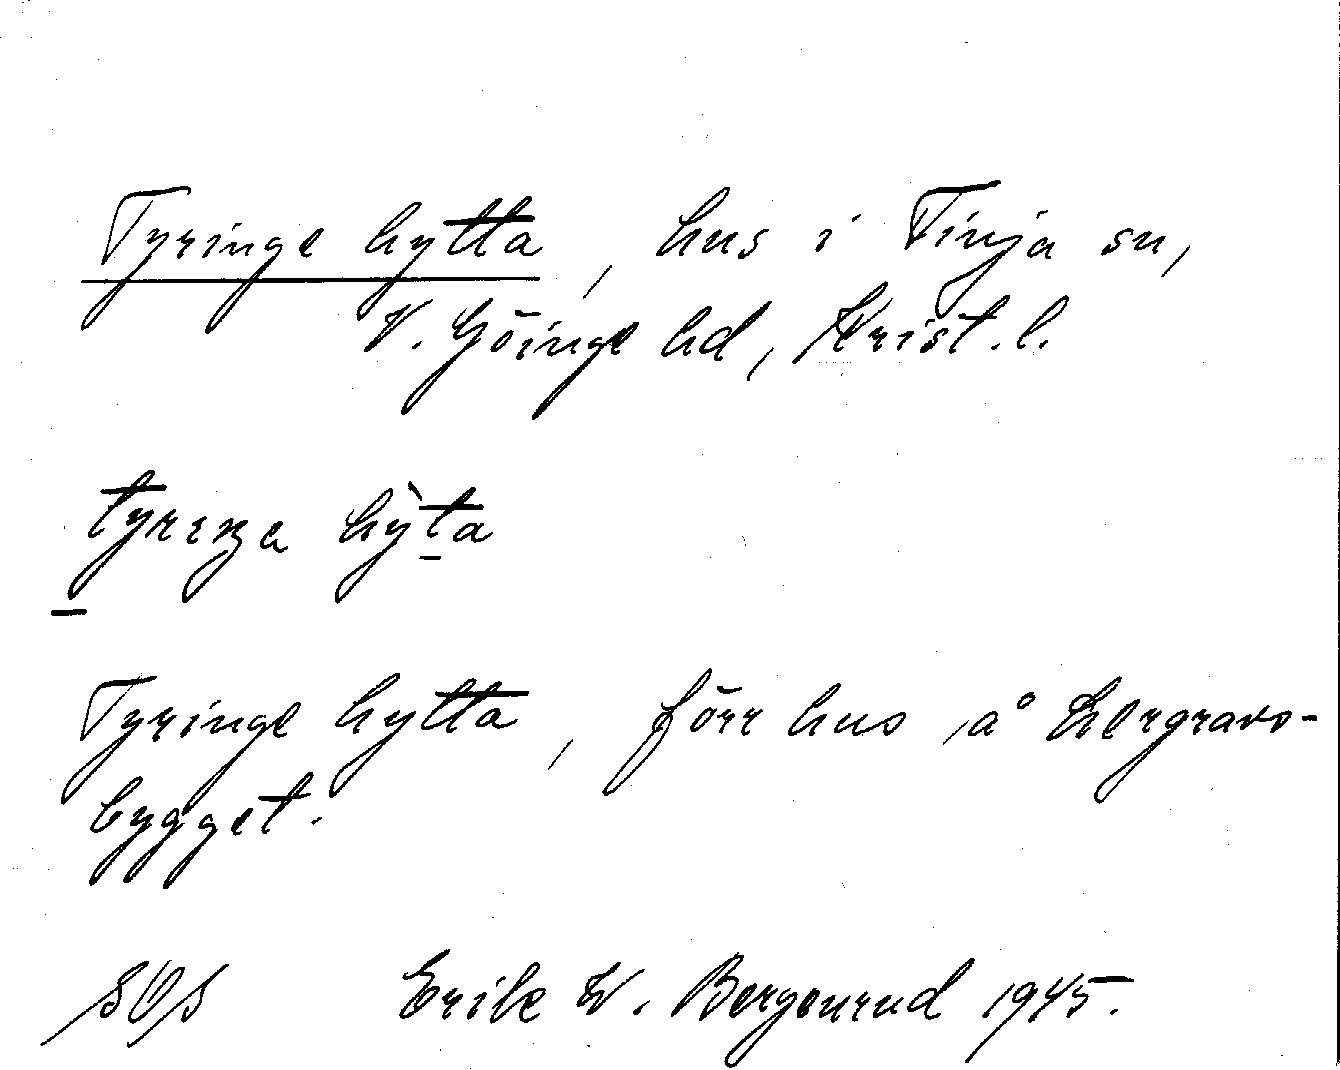 Tyringe hytta, hus i Finja sn,
V. Göinge hd, Krist. l.
hỳta
Tyringe hytta, förr hus å Lergravs-
bygget.
SOS Erik W. Bergenrud 1945.